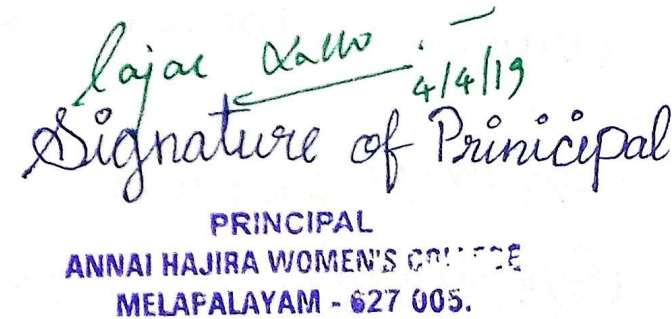 4/4/19
Signature of Prinicipal
PRINCIPAL
ANNAI HAJIRA WOMEN'S COLLEGE
MELAPALAYAM - 627 005.